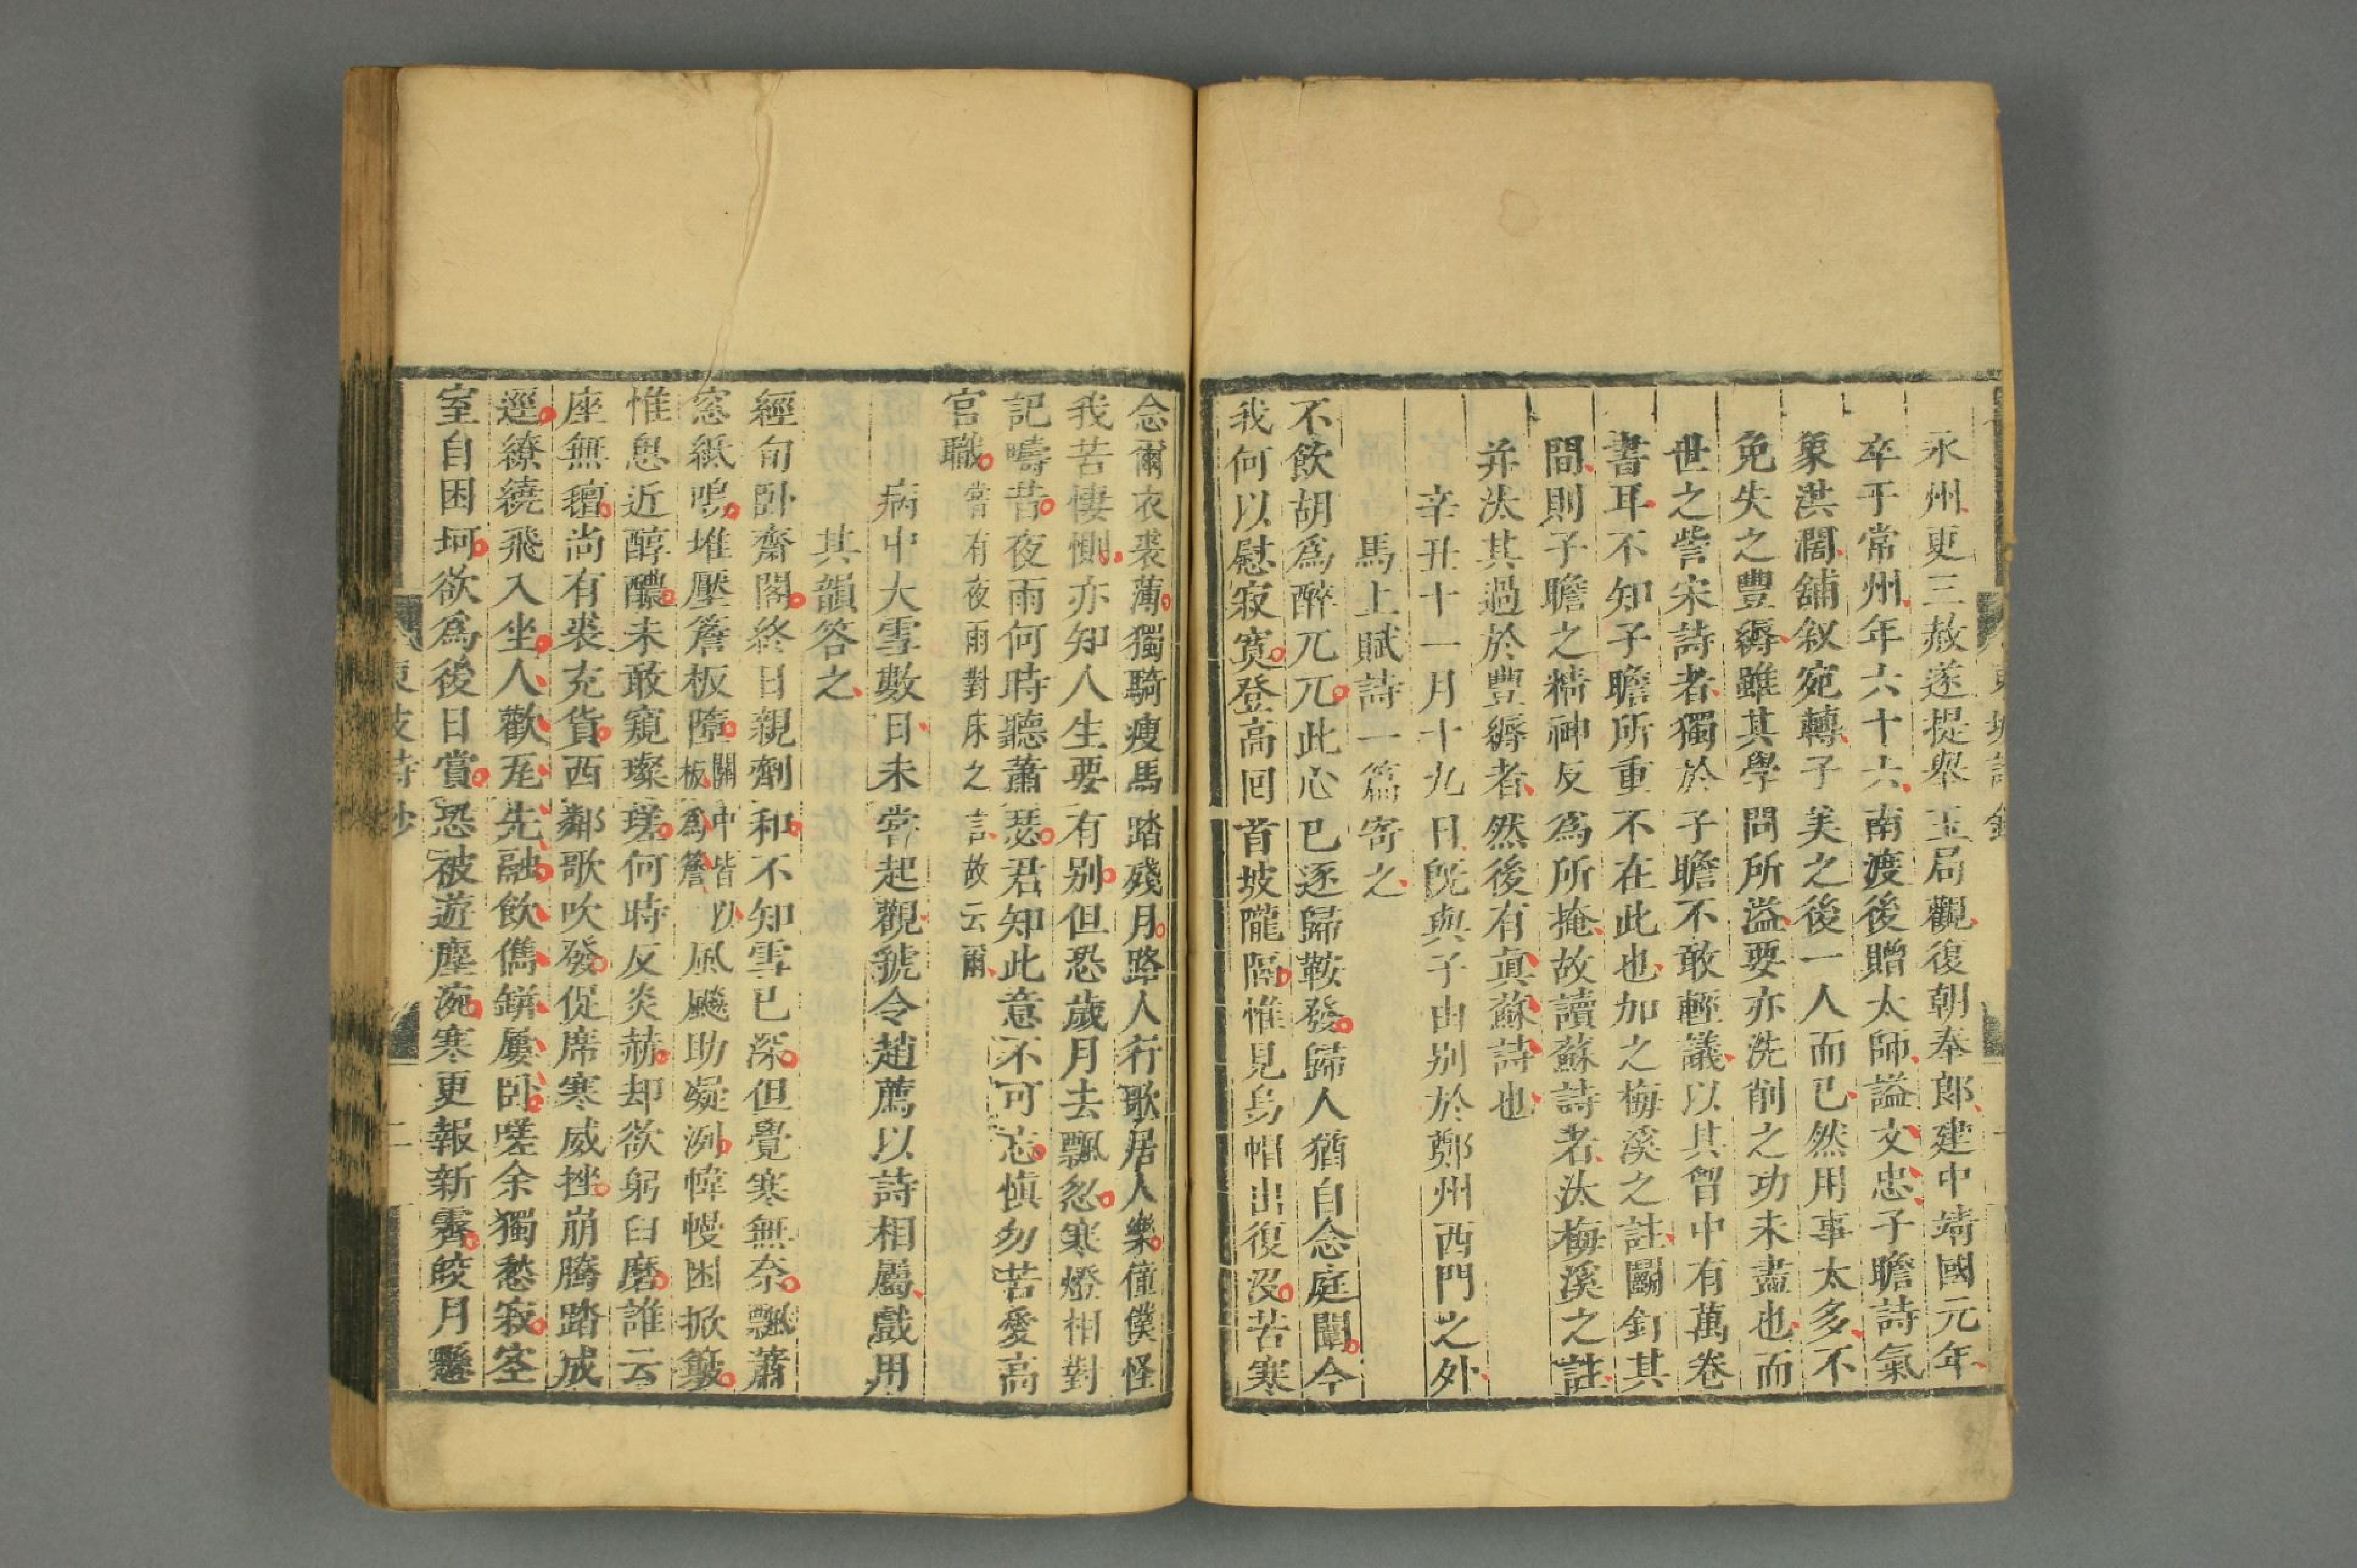 永州更三赦遂提舉玉局觀復朝奉郎建中靖國元年
卒于常州年六十六南渡後贈太師謚文忠子瞻詩氣
象洪闊鋪叙宛轉子美之後一人而已然用事太多不
免失之豐縟雖其學問所溢要亦洗削之功未盡也而
世之訾宋詩者獨於子瞻不敢輕議以其胷中有萬卷
書耳不知子瞻所重不在此也加之梅溪之註鬭釘其
間則子瞻之精神反爲所掩故讀蘇詩者汰梅溪之註
并汰其過於豐縟者然後有真蘇詩也
辛丑十一月十九日旣與子由别於鄭州西門之外
馬上賦詩一篇寄之
不飲胡爲醉兀兀此心已逐歸鞍發歸人猶自念庭闈今
我何以慰寂寞登高回首坡隴隔惟見烏帽出復沒苦寒
東坡詩鈔
一
念爾衣裘薄獨騎瘦馬踏殘月路人行歌居人樂僮僕怪
我苦悽惻亦知人生要有别但恐歲月去飄忽寒燈相對
記疇昔夜雨何時聽蕭瑟君知此意不可忘慎勿苦愛高
官職嘗有夜雨對牀之言故云爾
病中大雪數日未嘗起觀虢令趙薦以詩相屬戲用
其韻答之
經旬卧齋閣終日親劑和不知雪已深但覺寒無奈飄蕭
窓紙鳴堆壓簷板墮關中皆以板爲簷風飈助凝冽幃幔困掀簸
惟思近醇醲未敢窺璨瑳何時反炎赫却欲躬臼磨誰云
座無氊尚有裘充貨西鄰歌吹發促席寒威挫崩騰踏成
逕繚繞飛入坐人歡瓦先融飲儁缾屢卧嗟余獨愁寂空
室自困坷欲爲後日賞恐被遊塵涴寒更報新霽皎月懸
東坡詩鈔
二